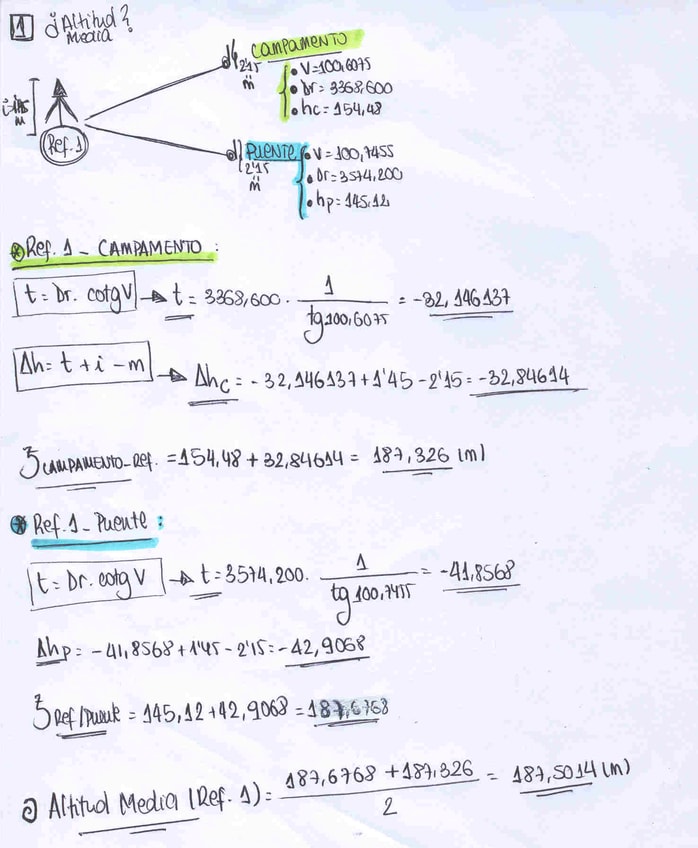 1 ¿Altitud Media?
CAMPAMENTO
2'15
m
• V=100,6075
• Dr = 3368,600
• hc = 154,48
m
Ref. 1
PUENTE
2'15
m
• V = 100,7455
• Dr = 3574,200
• hp = 145,12
Ref. 1 - CAMPAMENTO :
t = Dr. cotg V → t = 3368,600 · 1 / tg 100,6075 = -32,146137
Δh = t + i - m → Δhc = - 32,146137 + 1'45 - 2'15 = -32,84614
Z CAMPAMENTO-Ref. = 154,48 + 32,84614 = 187,326 (m)
Ref. 1 - Puente :
t = Dr. cotg V → t = 3574,200 · 1 / tg 100,7455 = -41,8568
Δhp = -41,8568 + 1'45 - 2'15 = -42,9068
Z Ref/Puente = 145,12 + 42,9068 = 187,6768
Altitud Media (Ref. 1) = 187,6768 + 187,326 / 2 = 187,5014 (m)